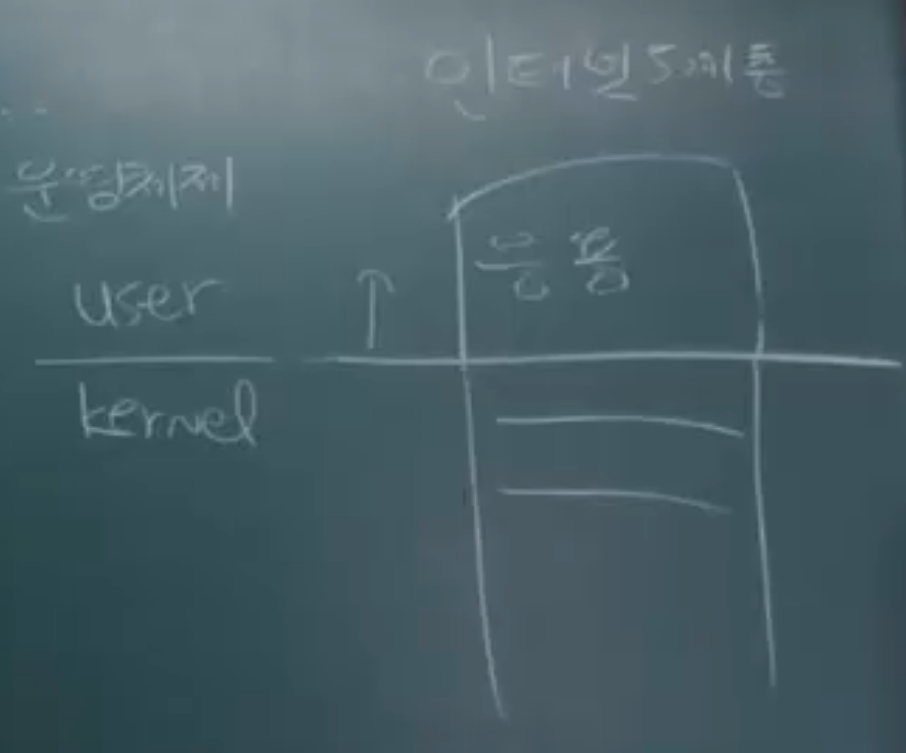 인터넷 5계층
운영체제
응용
user
kernel